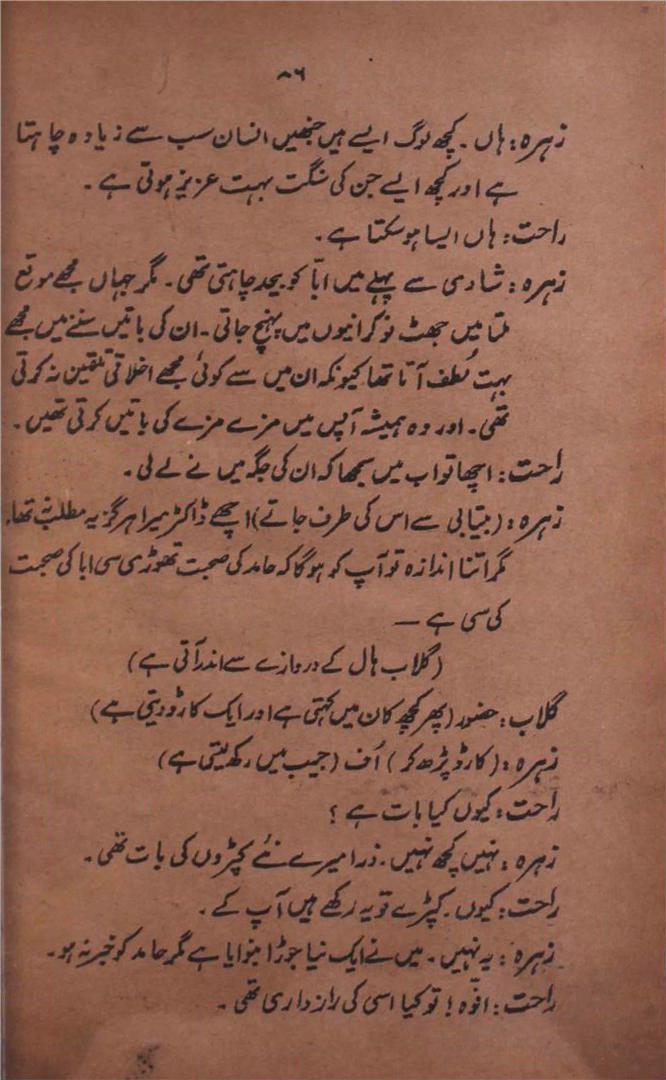 ۸۶
زہرہ: ہاں۔ کچھ لوگ ایسے ہیں جنھیں انسان سب سے زیادہ چاہتا
ہے اور کچھ ایسے جن کی سنگت بہت عزیز ہوتی ہے۔
راحت: ہاں ایسا ہو سکتا ہے۔
زہرہ: شادی سے پہلے میں ابّا کو بیحد چاہتی تھی۔ مگر جہاں مجھے موقع
ملتا میں جھٹ نوکرانیوں میں پہنچ جاتی۔ ان کی باتیں سننے میں مجھے
بہت لُطف آتا تھا کیونکہ ان میں سے کوئی مجھے اخلاقی تلقین نہ کرتی
تھی۔ اور وہ ہمیشہ آپس میں مزے مزے کی باتیں کرتی تھیں۔
راحت: اچھا تو اب میں سمجھا کہ ان کی جگہ میں نے لے لی۔
زہرہ: (بیتابی سے اس کی طرف جاتے) اچھے ڈاکٹر میرا ہرگز یہ مطلب نہ تھا۔
مگر اتنا اندازہ تو آپ کو ہوگا کہ حامد کی صحبت تھوڑی سی ابا کی صحبت
کی سی ہے —
(گلاب ہال کے دروازے سے اندر آتی ہے)
گلاب: حضور (پھر کچھ کان میں کہتی ہے اور ایک کارڈ دیتی ہے)
زہرہ: (کارڈ پڑھ کر) اُف (جیب میں رکھ لیتی ہے)
راحت: کیوں کیا بات ہے؟
زہرہ: نہیں کچھ نہیں۔ ذرا میرے نئے کپڑوں کی بات تھی۔
راحت: کیوں۔ کپڑے تو یہ رکھے ہیں آپ کے۔
زہرہ: یہ نہیں۔ میں نے ایک نیا جوڑا بنوایا ہے مگر حامد کو خبر نہ ہو۔
راحت: افّوہ! تو کیا اسی کی رازداری تھی۔